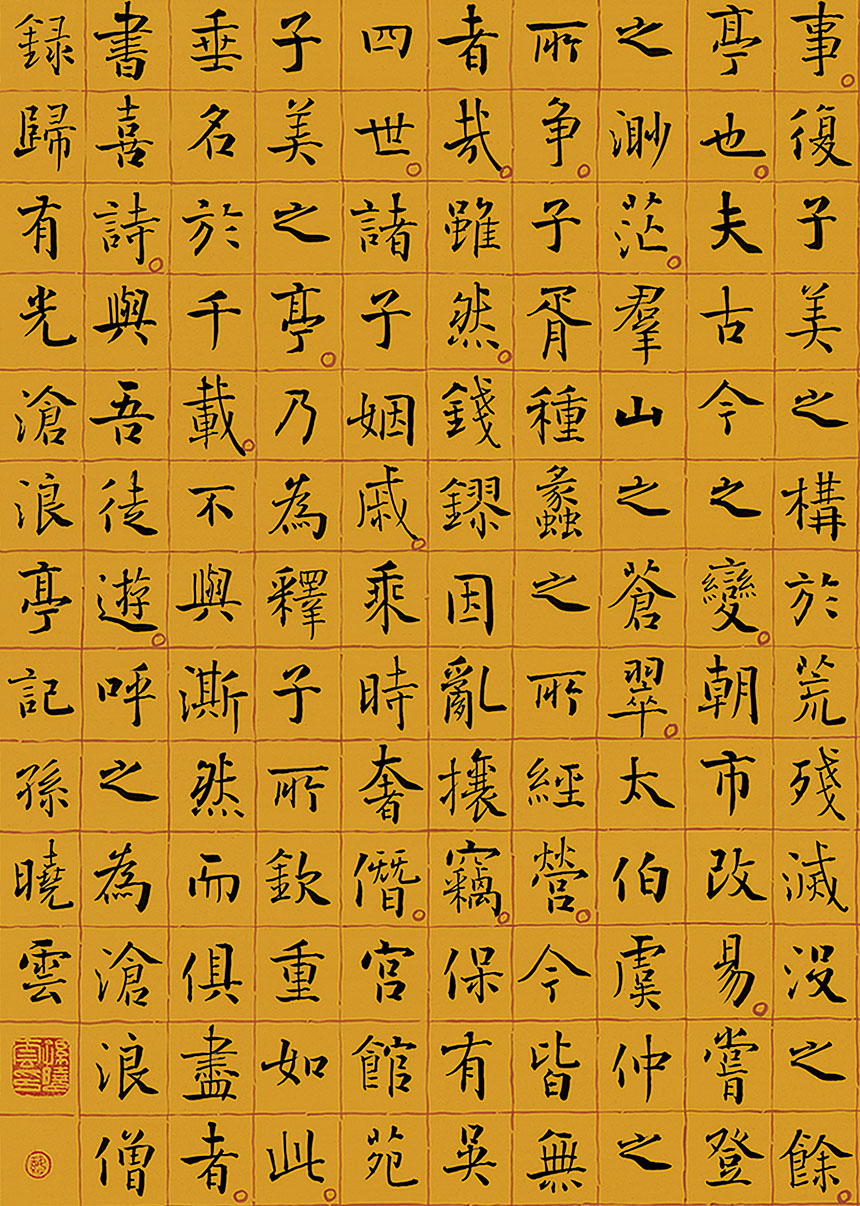 事。復子美之構於荒殘滅没之餘。
亭也。夫古今之變。朝市改易。嘗登
之渺茫。羣山之蒼翠。太伯虞仲之
所争。子胥種蠡之所經營。今皆無
者哉。雖然。錢鏐因亂攘竊。保有吳
四世。諸子姻戚。乘時奢僭。宮館苑
子美之亭。乃為釋子所欽重如此。
垂名於千載。不與澌然而俱盡者。
書喜詩。與吾徒遊。呼之為滄浪僧
録歸有光滄浪亭記孫曉雲